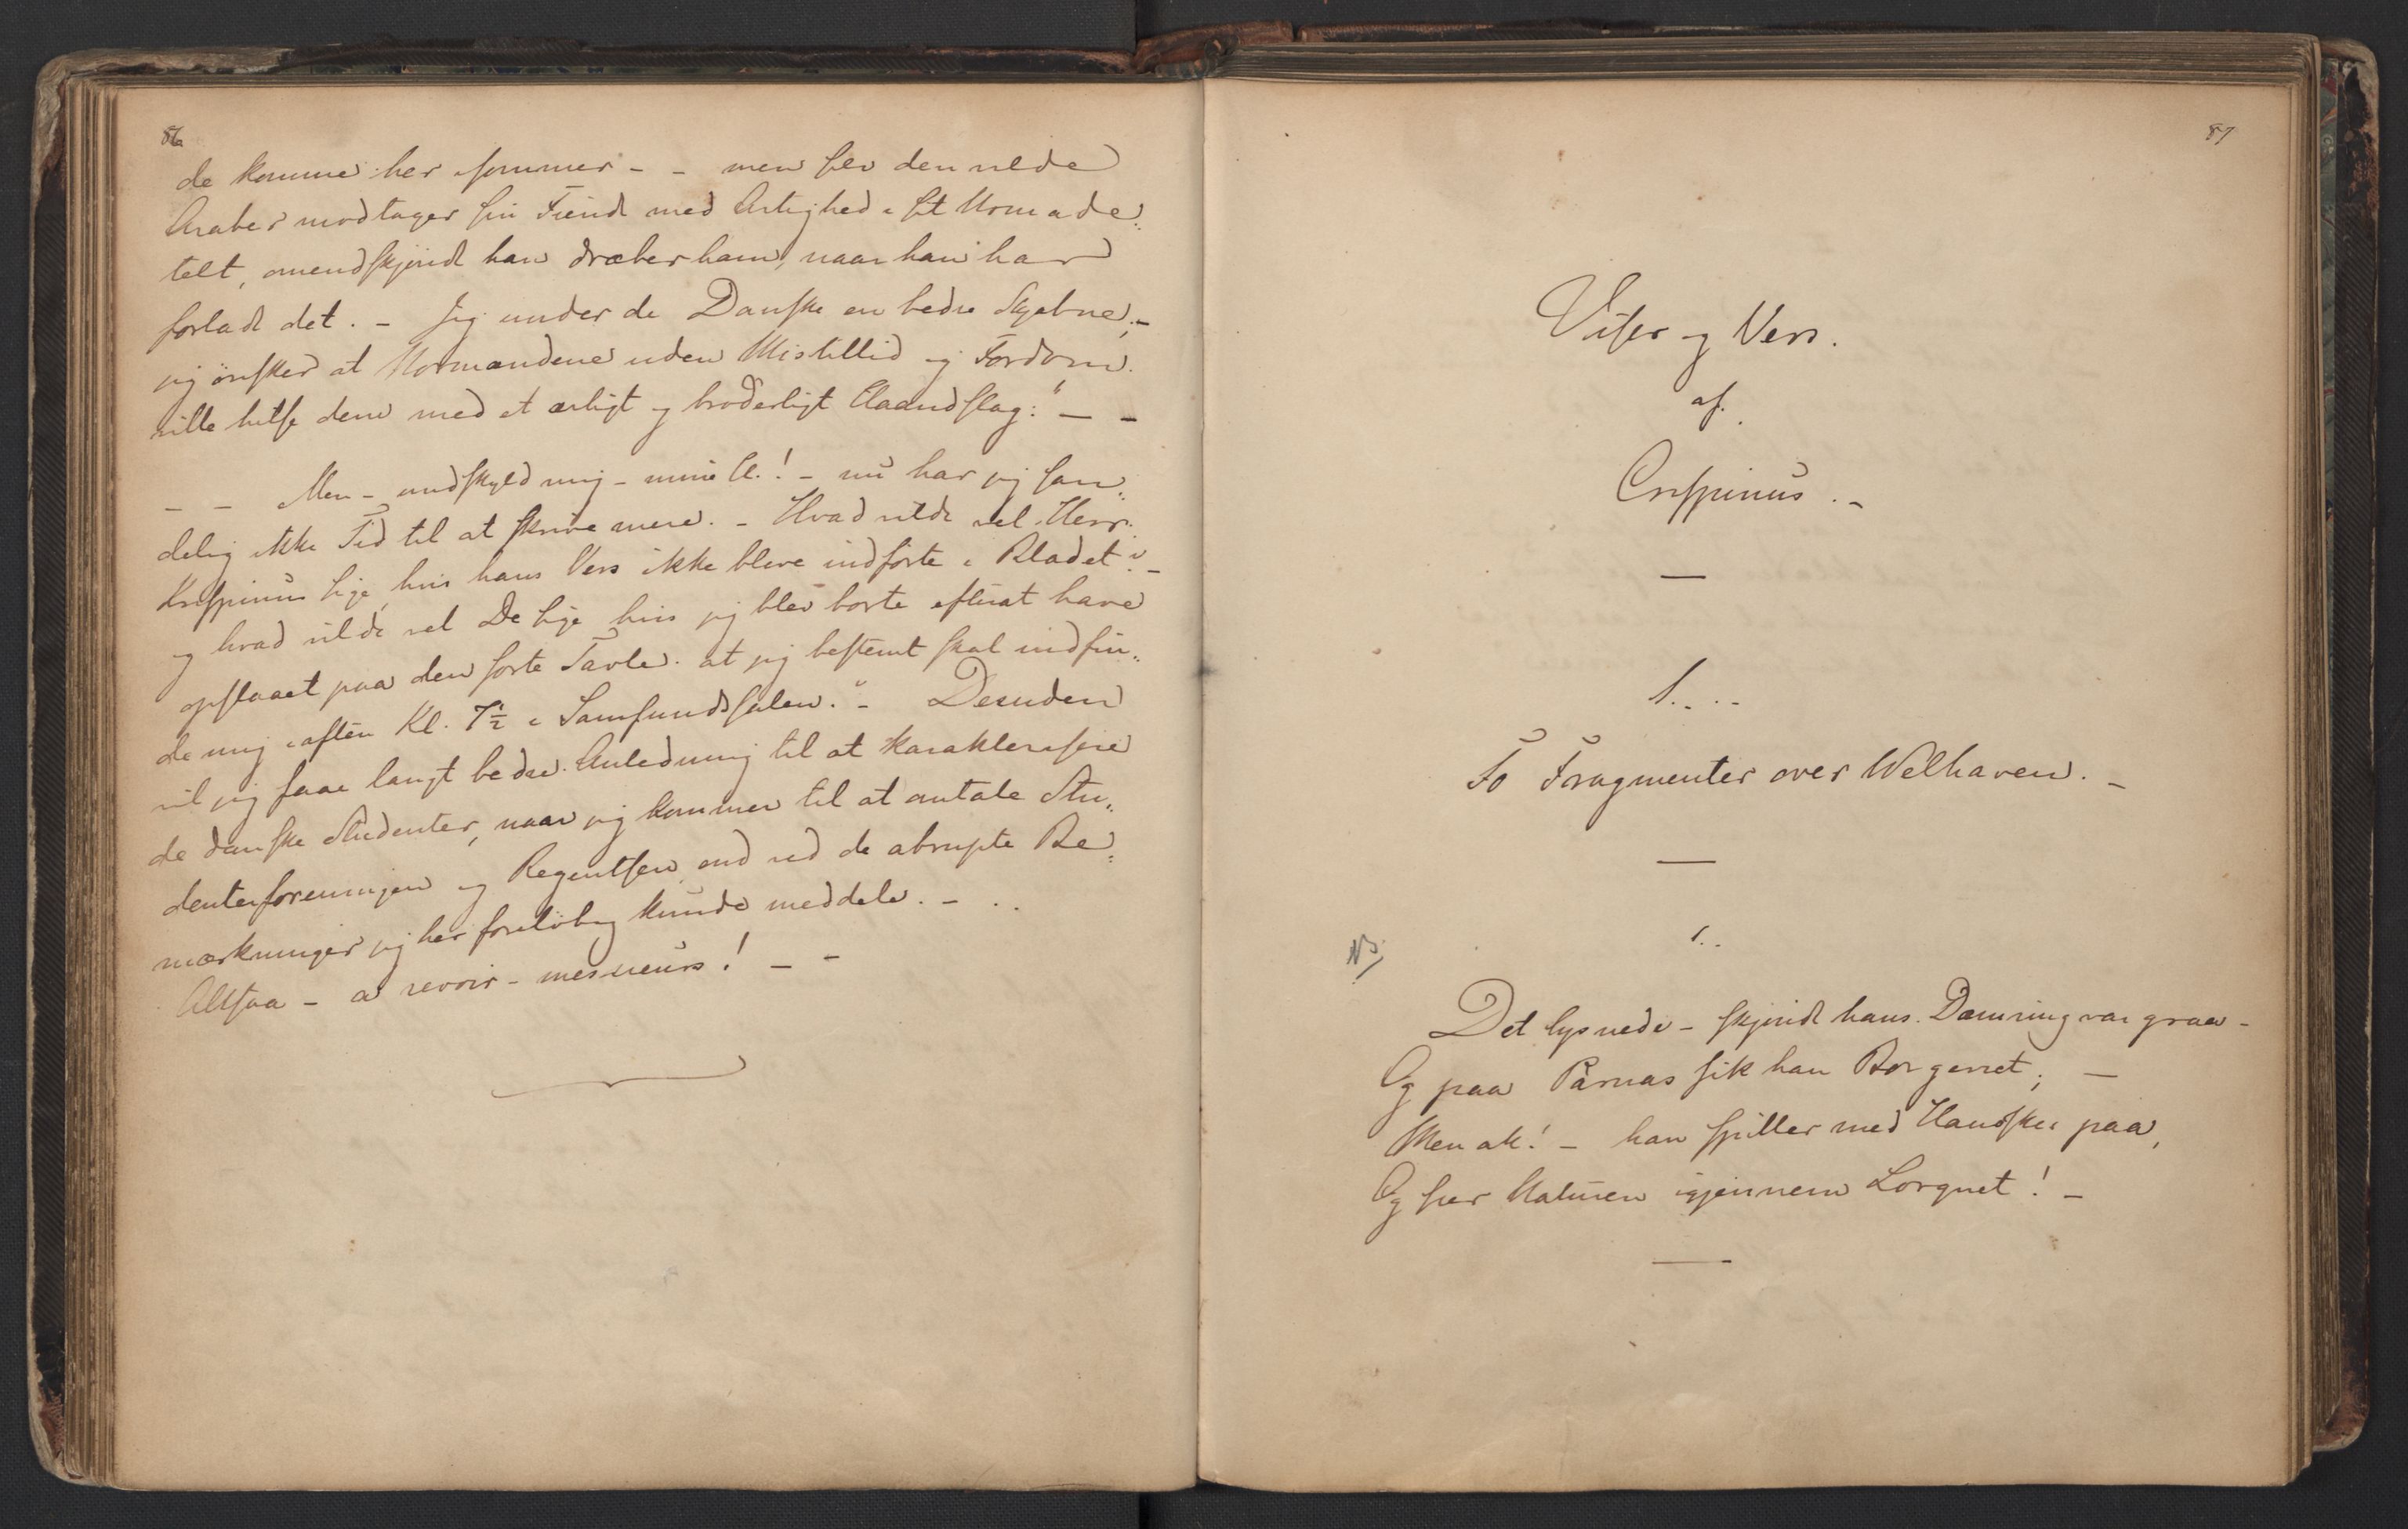 86
de komme her isommer - - men selv den vilde
Araber modtager sin Fiende med Artighed i sit Nomade-
telt, omendskjøndt han dræber ham, naar han har
forladt det. - Jeg under de Danske en bedre Skjæbne; -
jeg ønsker at Nordmændene uden Mistillid og Fordom
ville hilse dem med et ærligt og broderligt Haandslag." - -
- - Men - undskyld mig - mine H.! - nu har jeg san-
delig ikke Tid til at skrive mere. - Hvad vilde vel Herr
Krispinus sige, hvis hans Vers ikke bleve indførte i Bladet? -
og hvad vilde vel De sige hvis jeg blev borte efterat have
opslaaet paa den sorte Tavle at jeg bestemt skal indfin-
de mig iaften Kl. 7½ i Samfundssalen." - Desuden
vil jeg faae langt bedre Anledning til at karakterisere
de danske Studenter, naar jeg kommer til at omtale Stu-
denterforeningen og Regentsen, end ved de abrupte Be-
mærkninger jeg her foreløbig kunde meddele. - . .
Altsaa - a revoir - messieurs! - -
87
Viser og Vers.
af.
Crispinus. -
1. . .
To Fragmenter over Welhaven. -
1. .
NB
Det lysnede - skjøndt hans Dæmring var graa -
Og paa Parnas fik han Borgerret; -
Men ak! - han spiller med Handsker paa,
Og seer Naturen igjennem Lorgnet! -